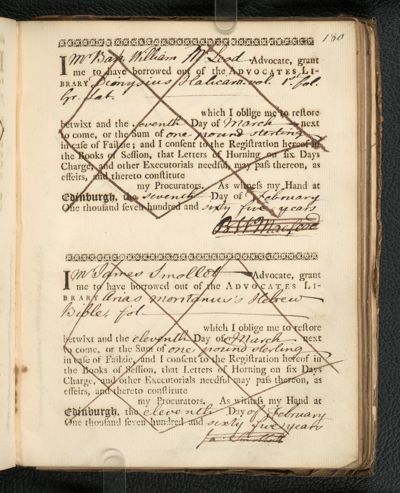 180
I Mr Ban William McLeod Advocate, grant
me to have borrowed out of the ADVOCATES LI-
BRARY Dionysius Halicarn. vol. 1st fol.
Gr. Lat.
which I oblige me to restore
betwixt and the seventh Day of March next
to come, or the Sum of one pound sterling
in case of Failzie; and I consent to the Registration hereof in
the Books of Session, that Letters of Horning on six Days
Charge, and other Executorials needful may pass thereon, as
effeirs, and thereto constitute
my Procurators. As witness my Hand at
Edinburgh, the seventh Day of February
One thousand seven hundred and sixty five years
I Mr James Smollett Advocate, grant
me to have borrowed out of the ADVOCATES LI-
BRARY Arias montanus's Hebrew
Bible, fol
which I oblige me to restore
betwixt and the eleventh Day of March next
to come, or the Sum of one pound sterling
in case of Failzie, and I consent to the Registration hereof in
the Books of Session, that Letters of Horning on six Days
Charge, and other Executorials needful may pass thereon, as
effeirs, and thereto constitute
my Procurators. As witness my Hand at
Edinburgh, the eleventh Day of February
One thousand seven hundred and sixty five years
Ja: Smollett